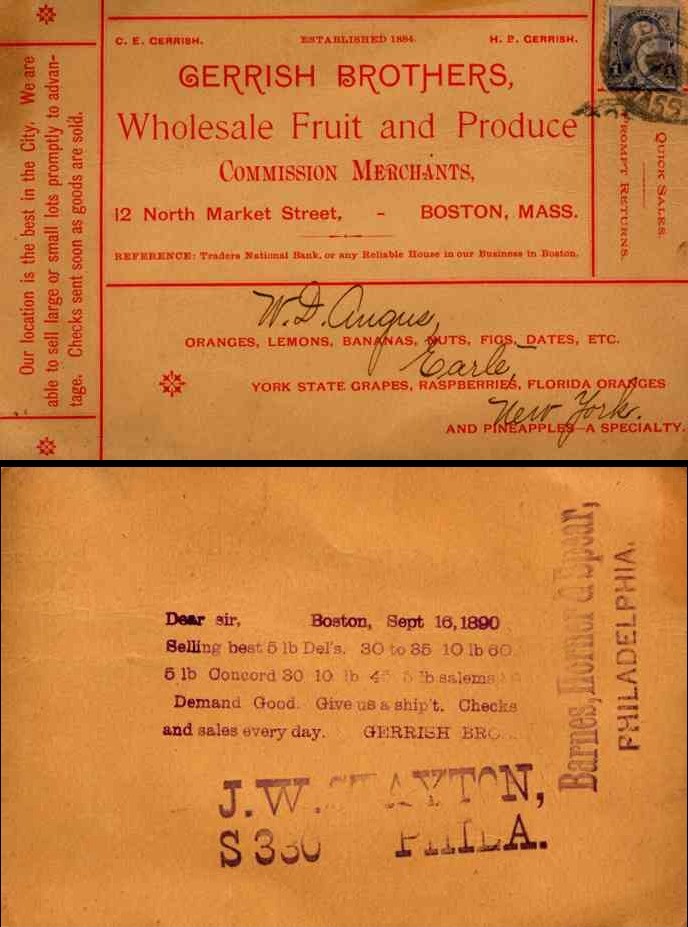 C. E. GERRISH. ESTABLISHED 1884. H. P. GERRISH.
GERRISH BROTHERS,
Wholesale Fruit and Produce
COMMISSION MERCHANTS,
12 North Market Street, - BOSTON, MASS.
REFERENCE: Traders National Bank, or any Reliable House in our Business in Boston.
Our location is the best in the City. We are
able to sell large or small lots promptly to advan-
tage. Checks sent soon as goods are sold.
QUICK SALES.
PROMPT RETURNS.
MASS
W. D. Angus,
ORANGES, LEMONS, BANANAS, NUTS, FIGS, DATES, ETC.
Earle,
YORK STATE GRAPES, RASPBERRIES, FLORIDA ORANGES
New York.
AND PINEAPPLES—A SPECIALTY.
Dear sir, Boston, Sept 16, 1890
Selling best 5 lb Del's. 30 to 35 10 lb 60
5 lb Concord 30 10 lb 45 5 lb salems
Demand Good. Give us a ship't. Checks
and sales every day. GERRISH BRO
J. W. AYTON,
S 330 PHILA.
Barnes, Horner & Spear,
PHILADELPHIA.